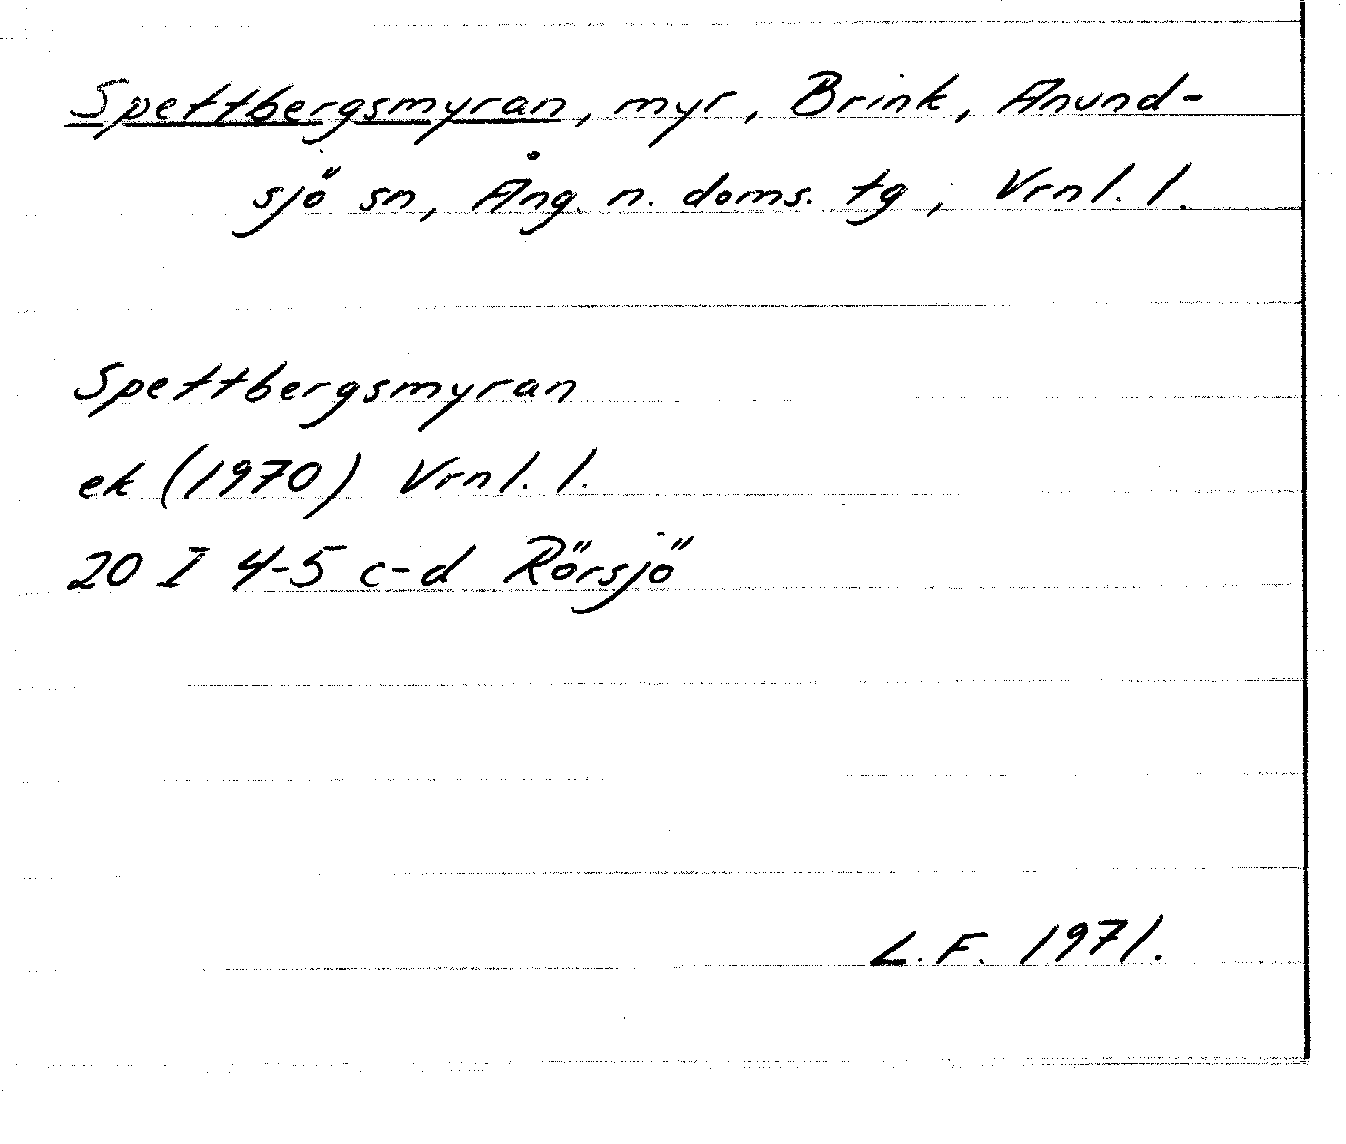 Spettbergsmyran, myr, Brink, Anund-
sjö sn, Ång. n. doms. tg, Vrnl. l.
Spettbergsmyran
ek (1970) Vrnl. l.
20 I 4-5 c-d Rörsjö
L.F. 1971.